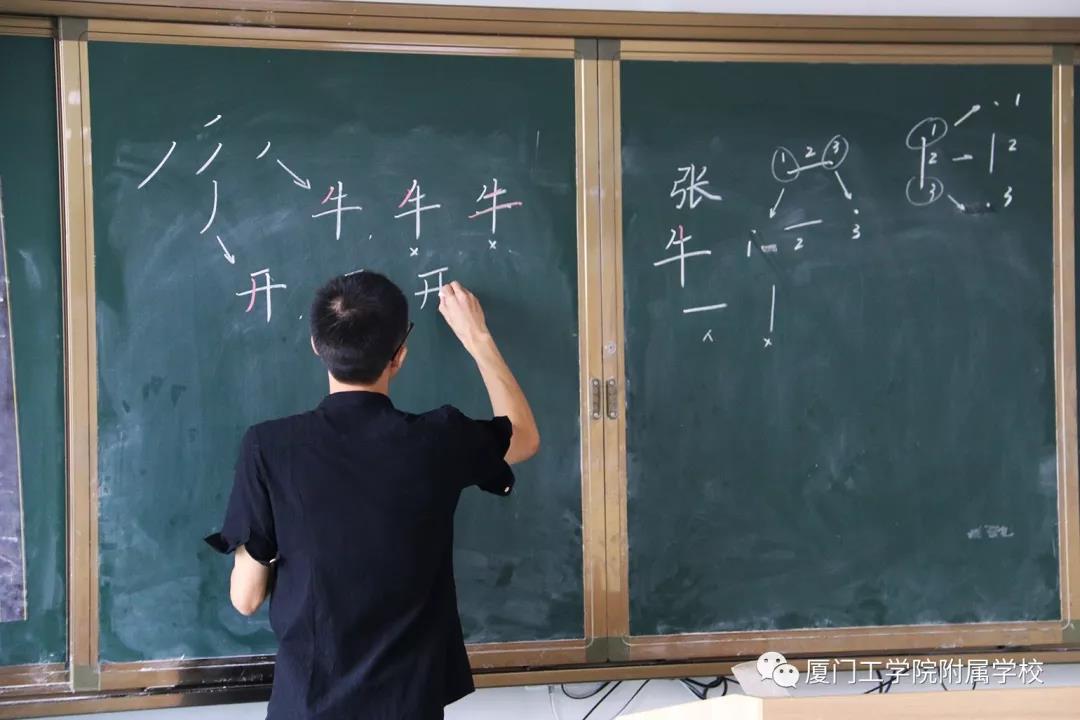 牛 牛 牛
× ×
开 开
张
牛
一
×
1 2 3
1 2 3
1 2 3
1 2 3
厦门工学院附属学校